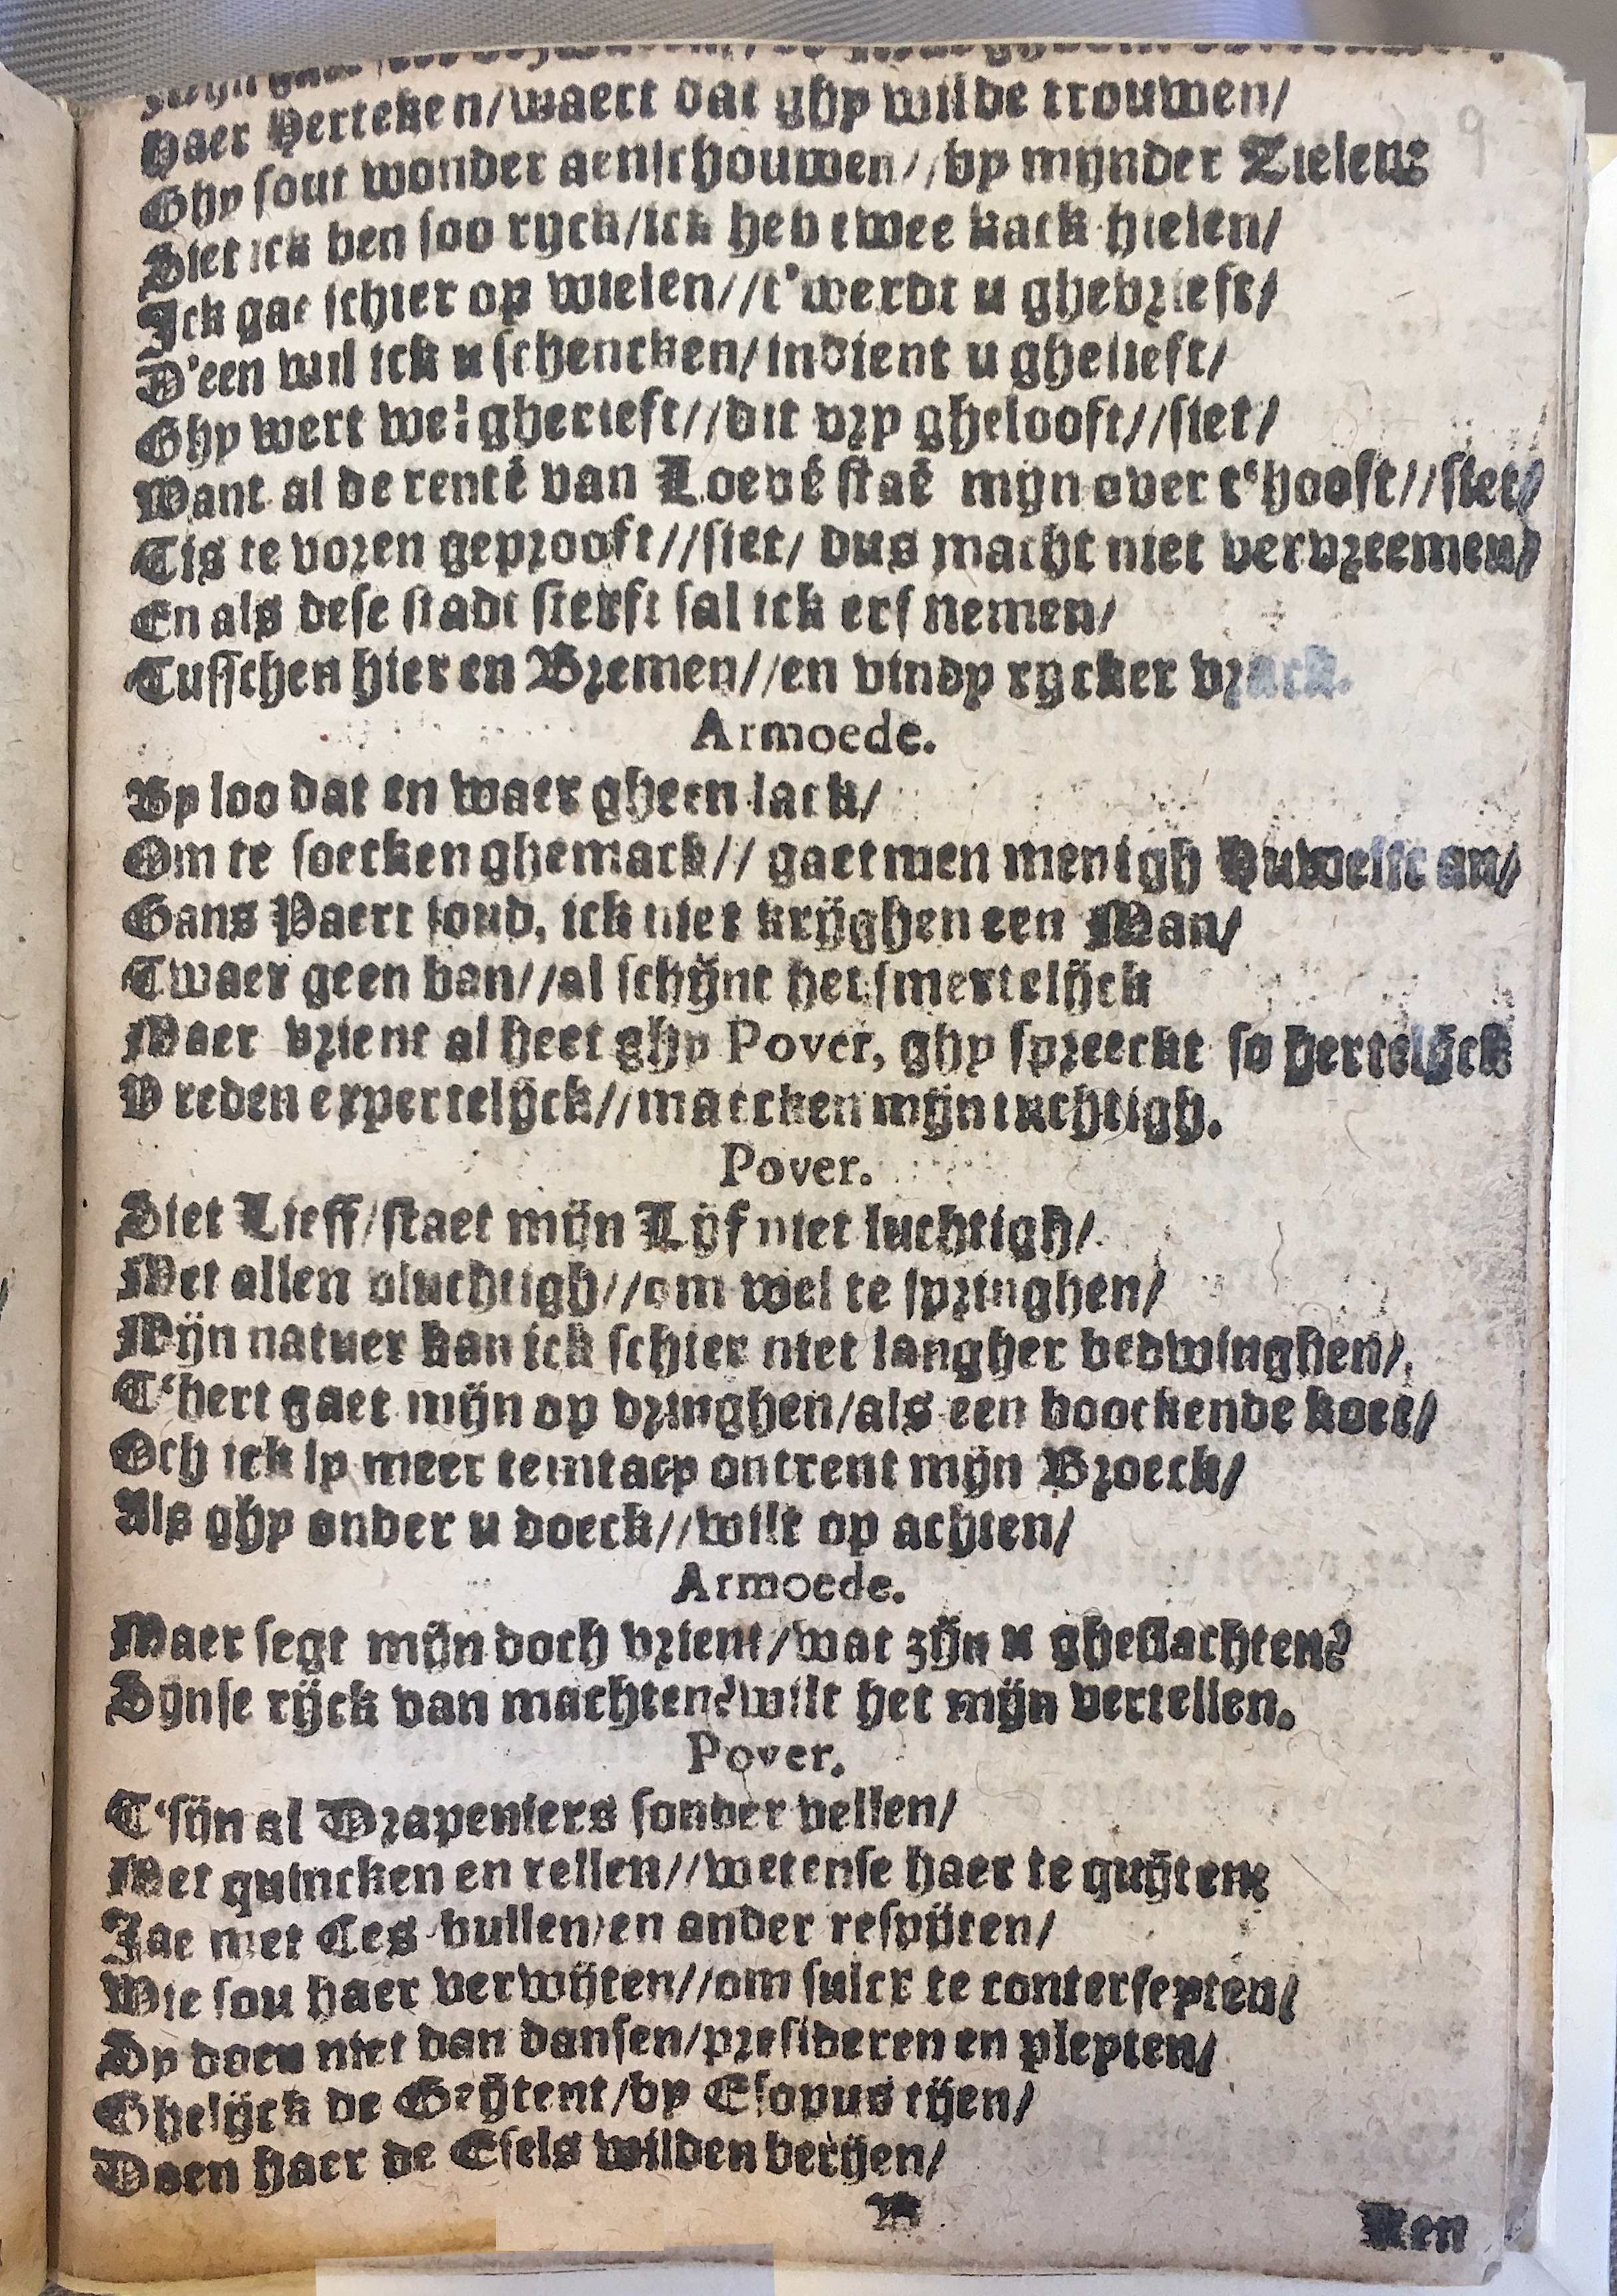 Haer Herteken/waert dat ghy wilde trouwen/
Ghy sout wonder aenschouwen//by mynder Zielen:
Siet ick ben soo ryck/ick heb twee kack-hielen/
Ick gae schier op wielen//t'werdt u ghebrieft/
D'een wil ick u schencken/indient u ghelieft/
Ghy wert wel gherieft//dit vry ghelooft//siet/
Want al de rentē van Loevē staē mijn over t'hooft//siet/
Tis te voren geprooft//siet/ dus macht niet vervreemen/
En als dese stadt sterft sal ick erf nemen/
Tusschen hier en Bremen//en vindy rycker vrack.
Armoede.
By loo dat en waer gheen lack/
Om te soecken ghemack// gaetmen menigh Huwelic an/
Gans Paert soud, ick niet krijghen een Man/
Twaer geen ban//al schijnt het smertelijck
Maer vrient al heet ghy Pover, ghy spreeckt so hertelijck
U reden expertelijck//maecken mijn tuchtigh.
Pover.
Siet Lieff/staet mijn Lijf niet luchtigh/
Met allen vluchtigh//om wel te springhen/
Mijn natuer kan ick schier niet langher bedwinghen/
T'hert gaet mijn op dringhen/als een boockende koec/
Och ick ly meer temtacy ontrent mijn Broeck/
Als ghy onder u doeck//wilt op achten/
Armoede.
Maer segt mijn doch vrient/wat zijn u gheslachten?
Sijnse rijck van machten?wilt het mijn vertellen.
Pover.
T'sijn al Drapeniers sonder vellen/
Met quincken en rellen//wetense haer te quijten:
Jae met Ces-bullen/en ander respijten/
Wie sou haer verwijten//om sulcx te conterfeyten/
Sy doen niet dan dansen/presideren en pleyten/
Ghelijck de Geijtent/by Esopus tijen/
Doen haer de Esels wilden berijen/
B
Een